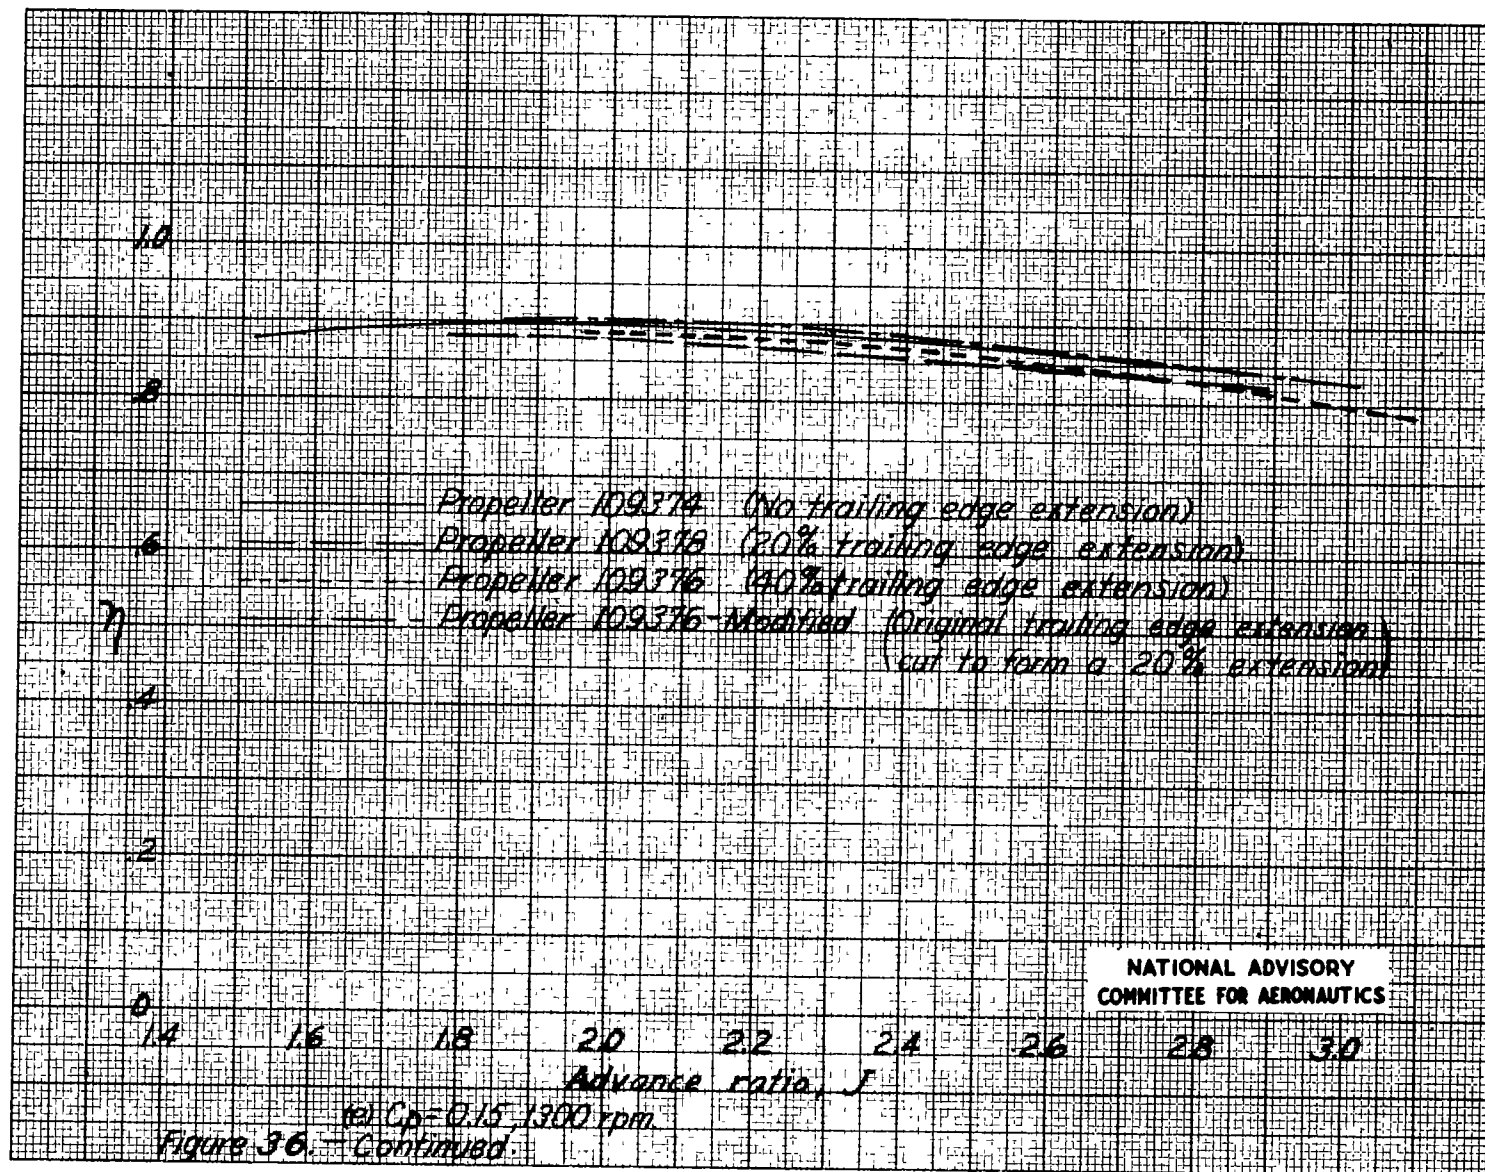 1.0
.8
Propeller 109374 (No trailing edge extension)
.6
Propeller 109378 (20% trailing edge extension)
Propeller 109376 (40% trailing edge extension)
η
Propeller 109376-Modified (Original trailing edge extension
cut to form a 20% extension)
.4
.2
NATIONAL ADVISORY
COMMITTEE FOR AERONAUTICS
0
1.4 1.6 1.8 2.0 2.2 2.4 2.6 2.8 3.0
Advance ratio, J
(e) Cp = 0.15, 1300 rpm.
Figure 36. - Continued.